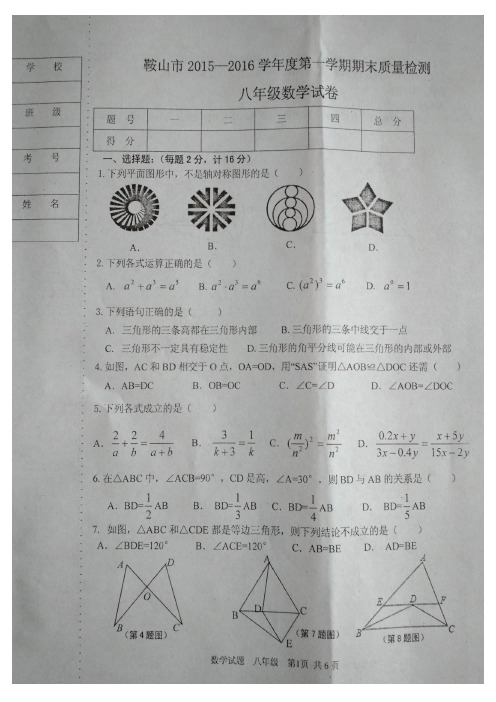 学 校
班 级
考 号
姓 名
鞍山市 2015—2016 学年度第一学期期末质量检测
八年级数学试卷
题 号 一 二 三 四 总 分
得 分
一、选择题:(每题 2 分,计 16 分)
1.下列平面图形中,不是轴对称图形的是( )
A. B. C. D.
2.下列各式运算正确的是( )
A. a²+a³=a⁵ B. a²·a³=a⁶ C. (a²)³=a⁶ D. a⁰=1
3.下列语句正确的是( )
A. 三角形的三条高都在三角形内部 B. 三角形的三条中线交于一点
C. 三角形不一定具有稳定性 D. 三角形的角平分线可能在三角形的内部或外部
4. 如图,AC 和 BD 相交于 O 点,OA=OD,用“SAS”证明△AOB≌△DOC 还需( )
A. AB=DC B. OB=OC C. ∠C=∠D D. ∠AOB=∠DOC
5.下列各式成立的是( )
A. 2/a+2/b=4/(a+b) B. 3/(k+3)=1/k C. (m/n²)²=m²/n² D. (0.2x+y)/(3x-0.4y)=(x+5y)/(15x-2y)
6.在△ABC 中,∠ACB=90°,CD 是高,∠A=30°,则 BD 与 AB 的关系是( )
A. BD=1/2 AB B. BD=1/3 AB C. BD=1/4 AB D. BD=1/5 AB
7. 如图,△ABC 和△CDE 都是等边三角形,则下列结论不成立的是( )
A. ∠BDE=120° B. ∠ACE=120° C. AB=BE D. AD=BE
A D O B C
(第 4 题图)
A B D C E
(第 7 题图)
A E D F B C
(第 8 题图)
数学试题 八年级 第1页 共 6 页